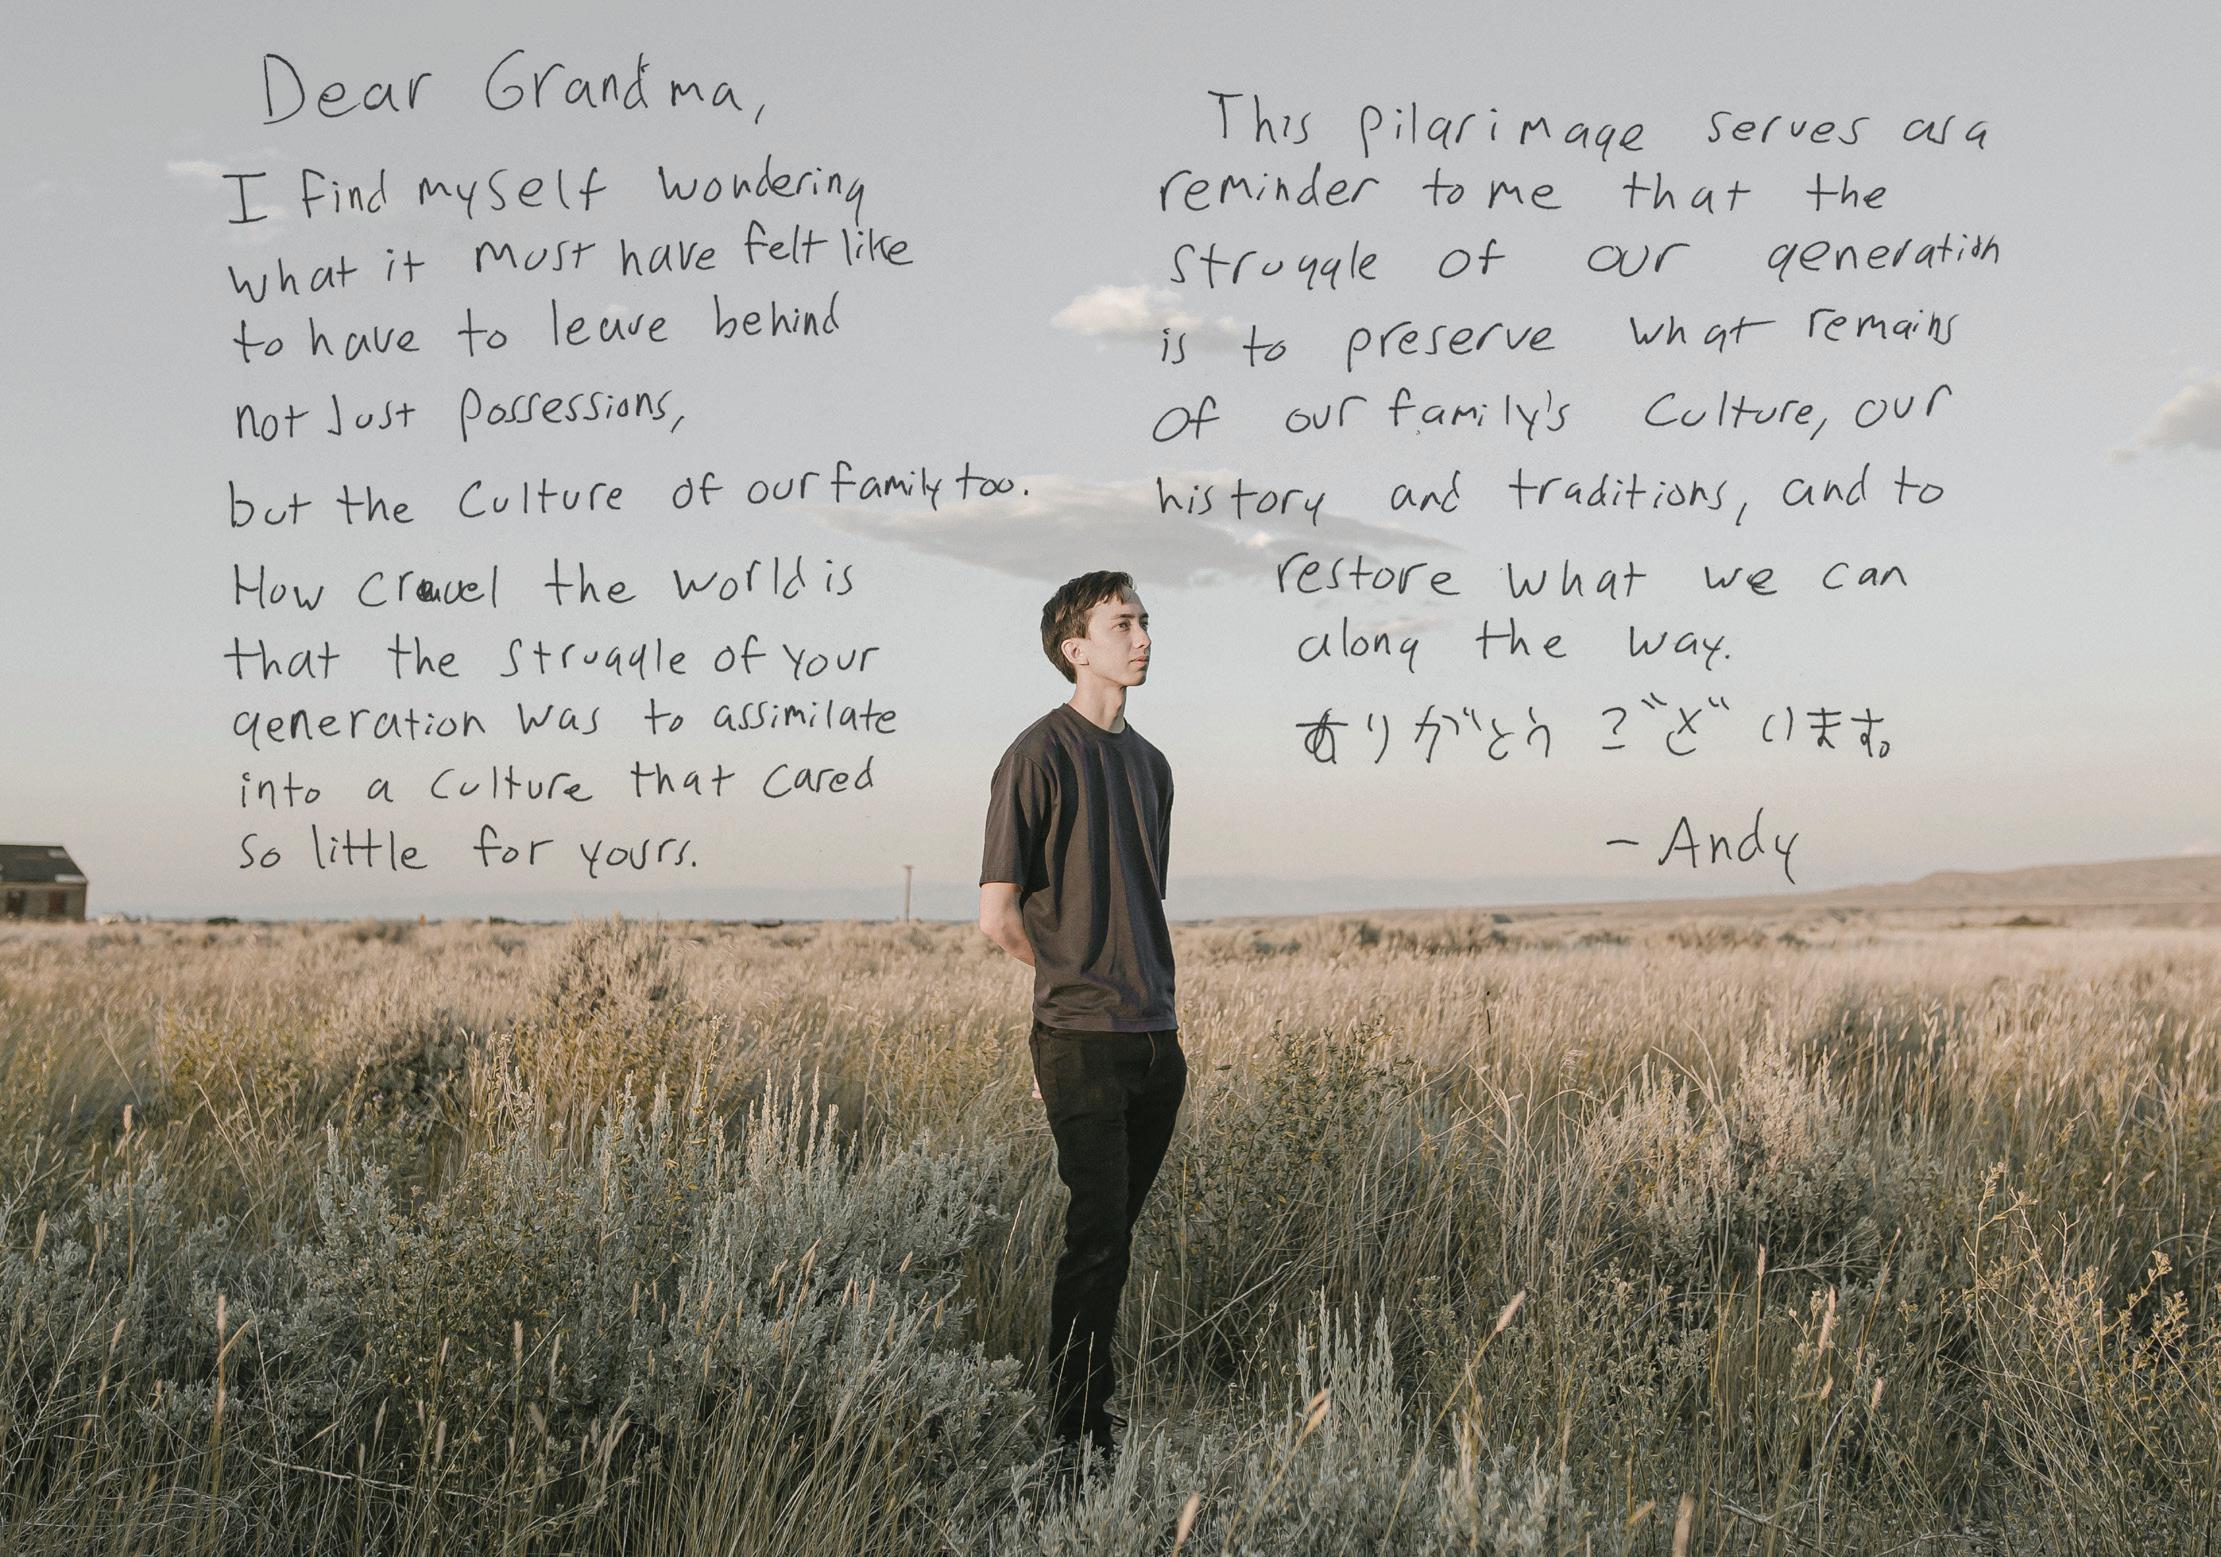 Dear Grandma,
I find myself wondering
what it must have felt like
to have to leave behind
not Just possessions,
but the Culture of our family too.
How cruel the world is
that the struggle of your
generation was to assimilate
into a Culture that cared
so little for yours.
This pilgrimage serves as a
reminder to me that the
struggle of our generation
is to preserve what remains
of our family's Culture, our
history and traditions, and to
restore what we can
along the way.
ありがとうございます。
- Andy